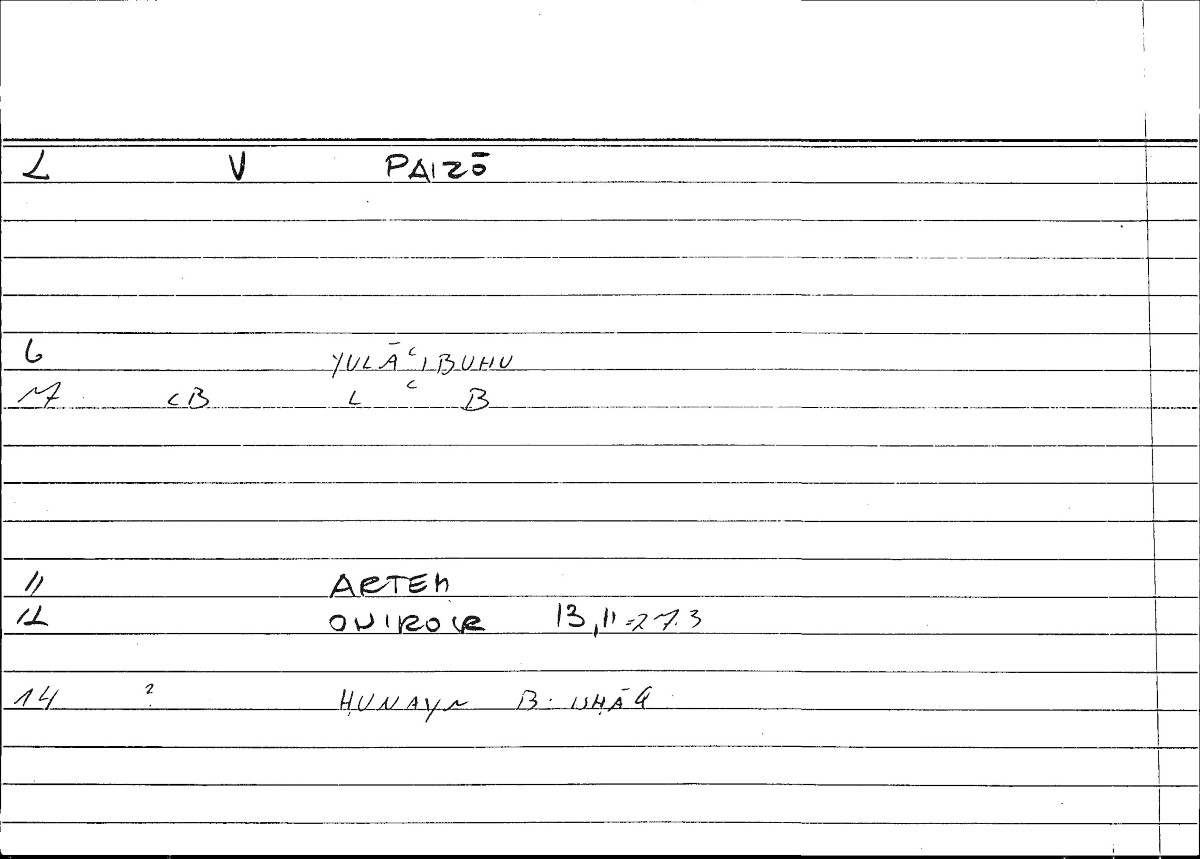 L V PAIZŌ
6 YULĀʿIBUHU
17 LB L ʿ B
11 ARTEM
12 ONIROCR 13,11=27.3
14 ? ḤUNAYN B. ISḤĀQ